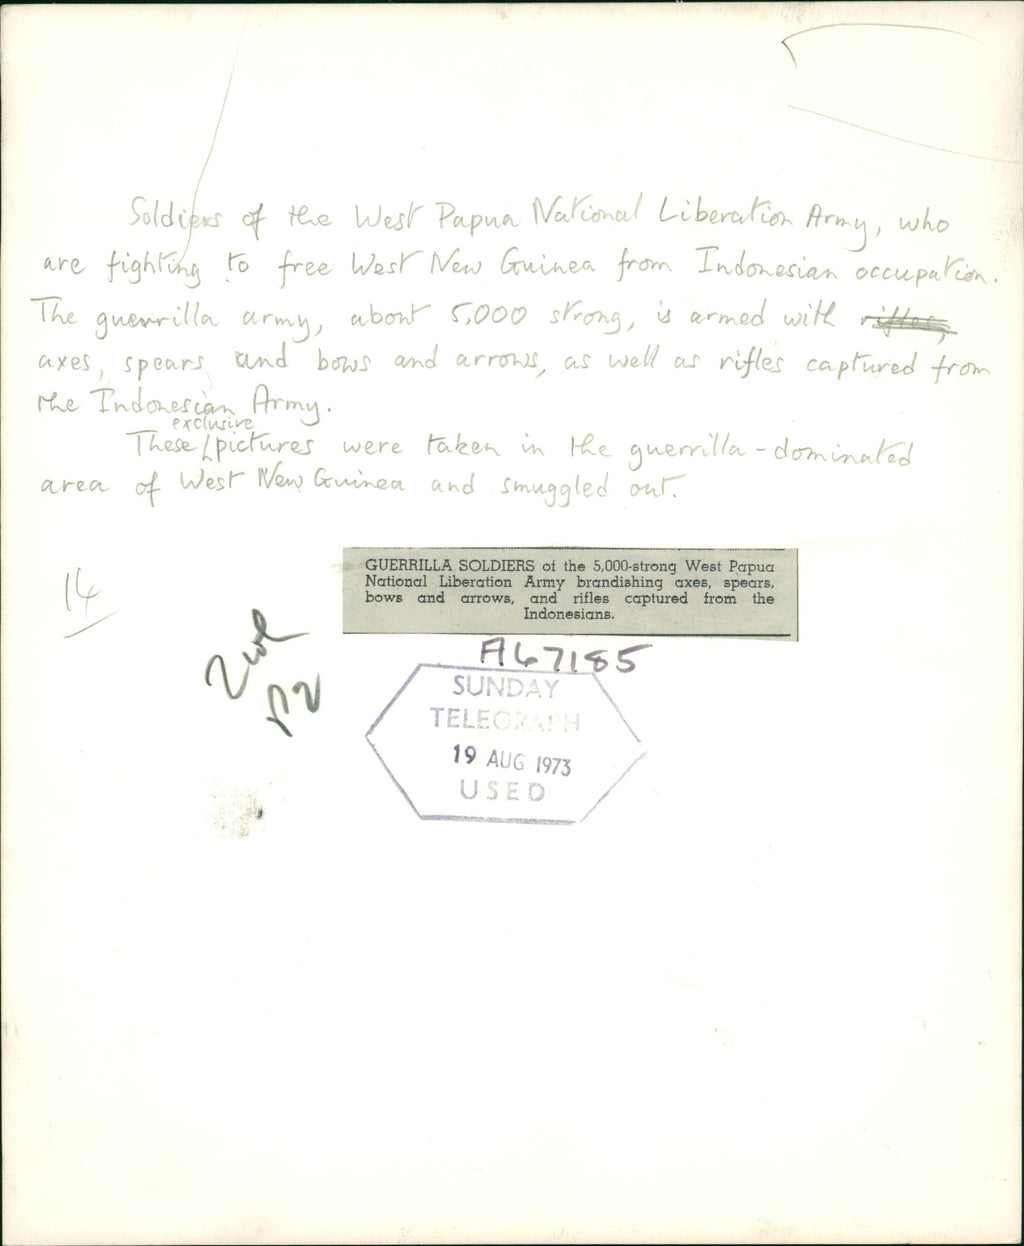 Soldiers of the West Papua National Liberation Army, who
are fighting to free West New Guinea from Indonesian occupation.
The guerrilla army, about 5,000 strong, is armed with rifles,
axes, spears and bows and arrows, as well as rifles captured from
the Indonesian Army.
exclusive
These pictures were taken in the guerrilla-dominated
area of West New Guinea and smuggled out.
GUERRILLA SOLDIERS of the 5,000-strong West Papua
National Liberation Army brandishing axes, spears,
bows and arrows, and rifles captured from the
Indonesians.
14
A67185
SUNDAY
TELEGRAPH
19 AUG 1973
USED